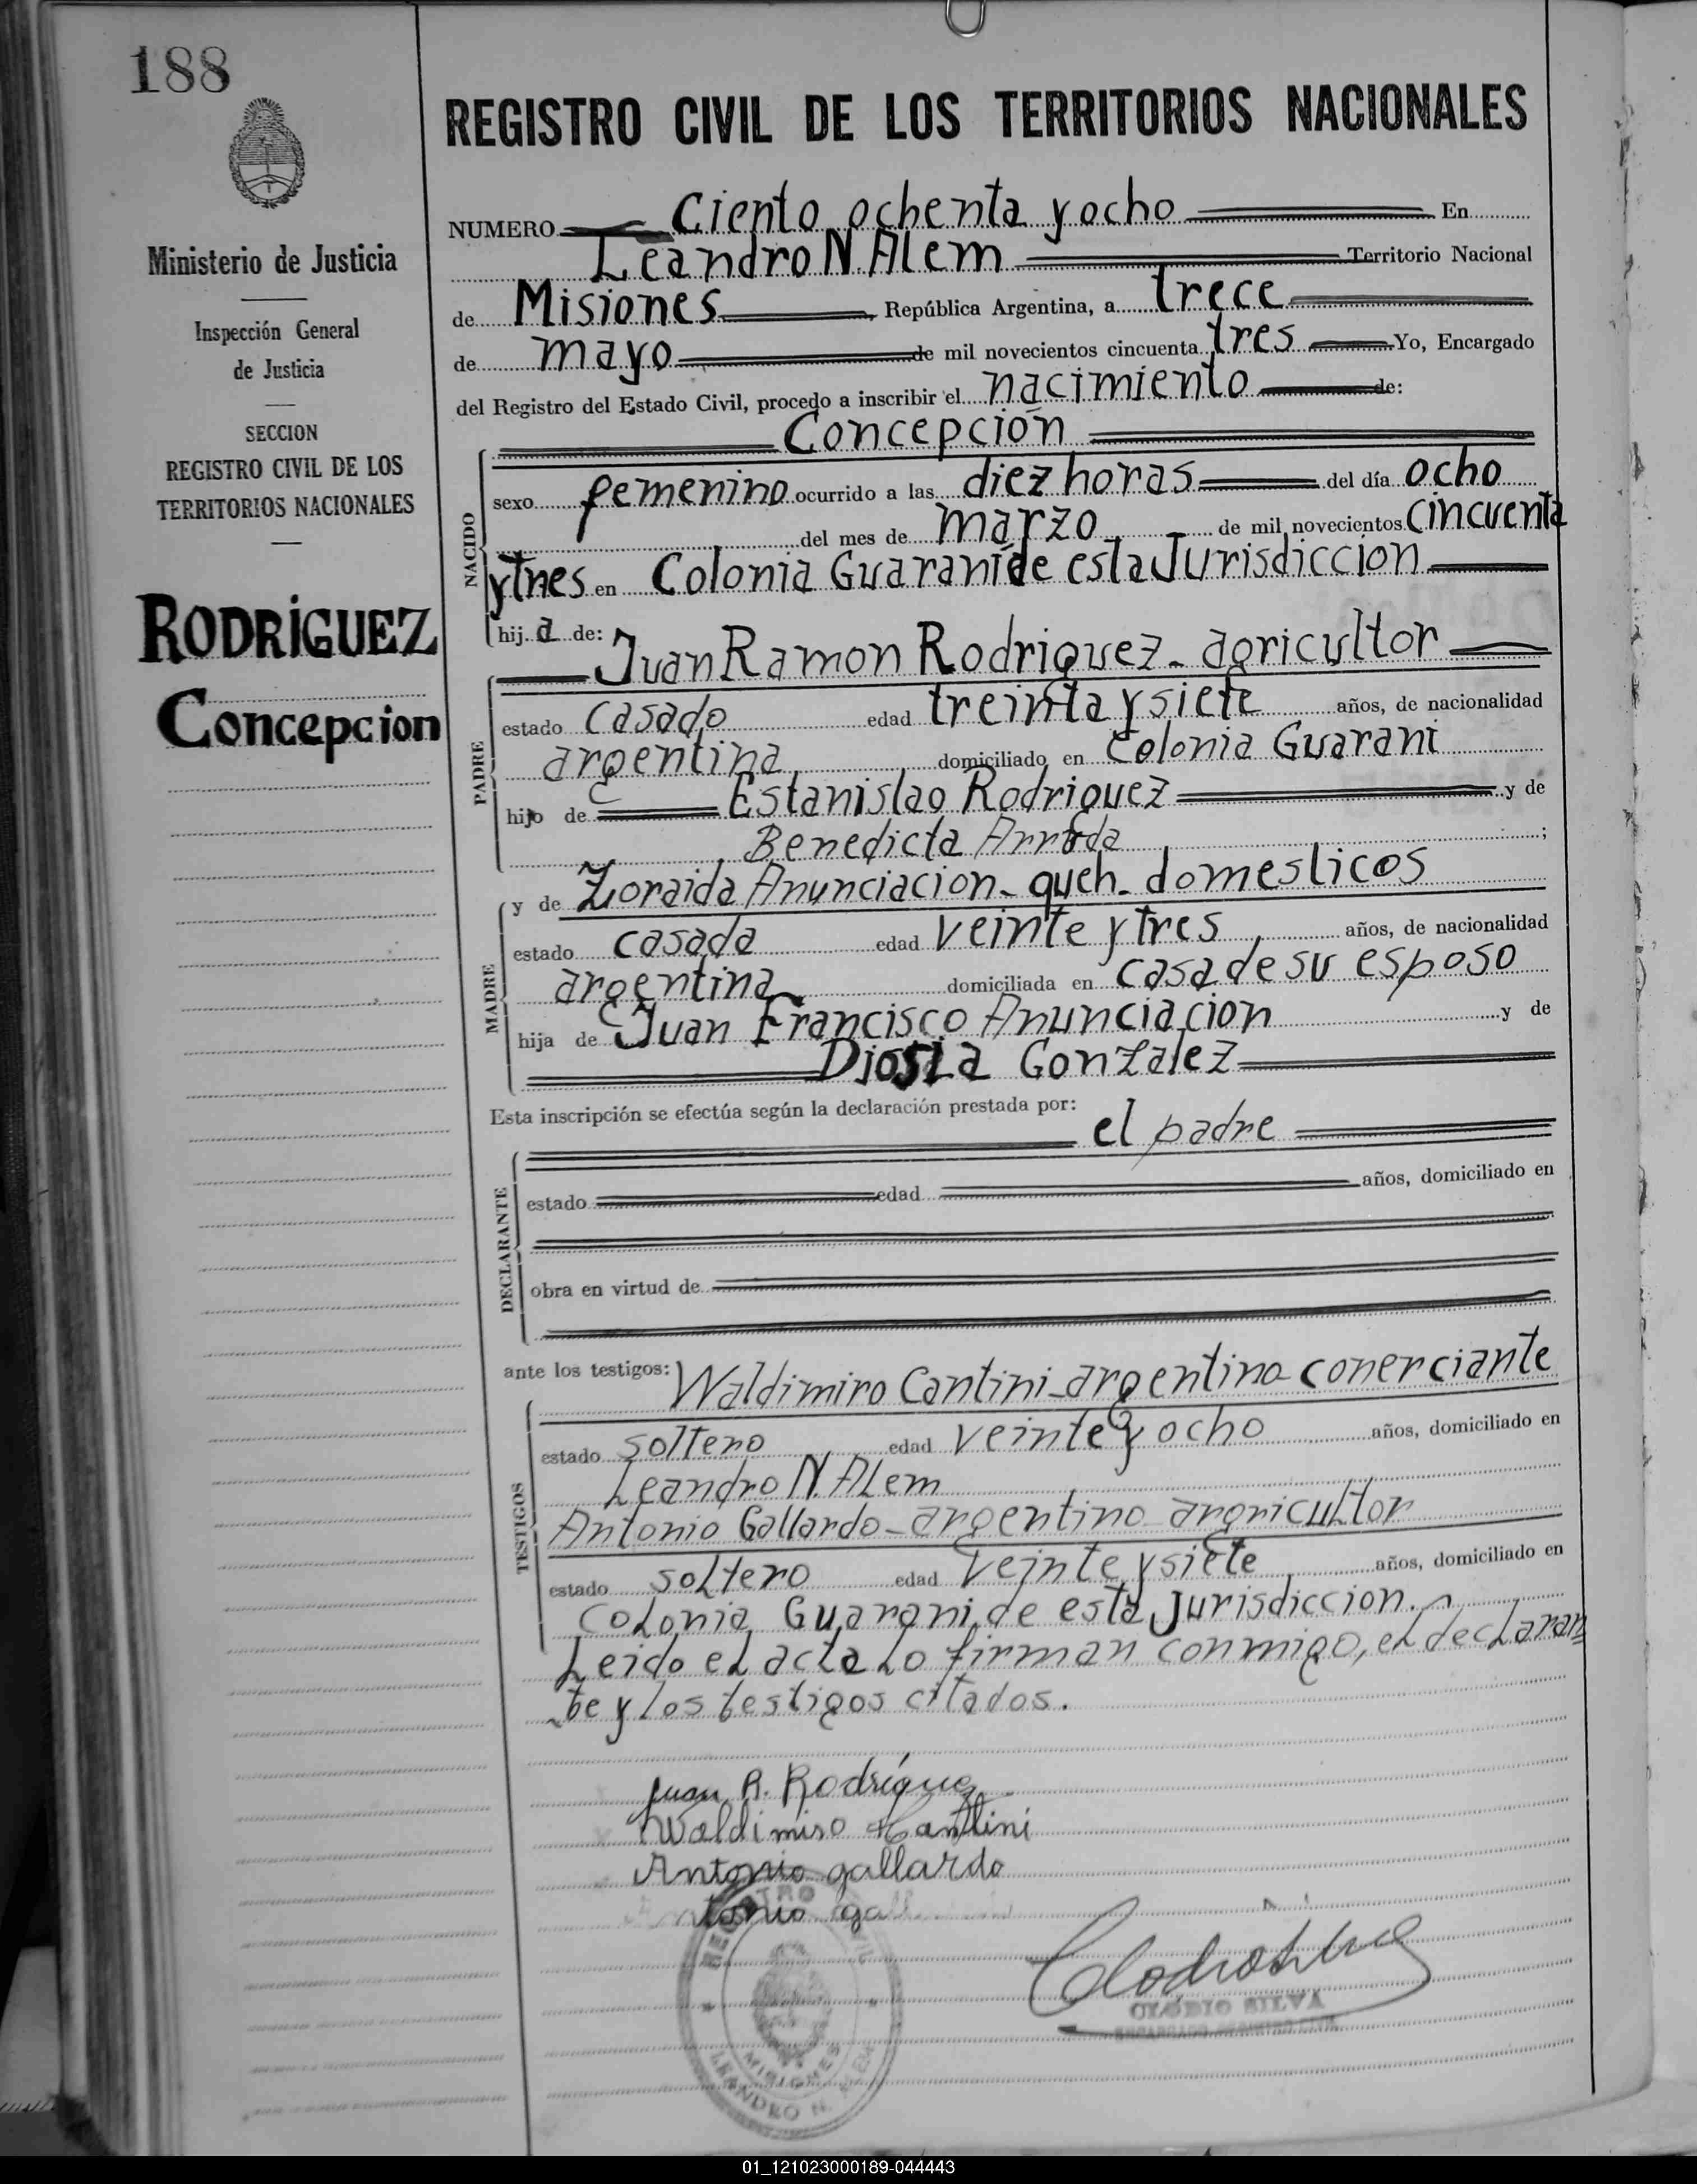 188
REGISTRO CIVIL DE LOS TERRITORIOS NACIONALES
Ministerio de Justicia
Inspección General
de Justicia
SECCION
REGISTRO CIVIL DE LOS
TERRITORIOS NACIONALES
RODRÍGUEZ
Concepcion
NUMERO Ciento ochenta y ocho En
Leandro N. Alem Territorio Nacional
de Misiones República Argentina, a trece
de mayo de mil novecientos cincuenta tres Yo, Encargado
del Registro del Estado Civil, procedo a inscribir el nacimiento de:
Concepción
NACIDO
sexo femenino ocurrido a las diez horas del día ocho
del mes de marzo de mil novecientos cincuenta
y tres en Colonia Guaraní de esta Jurisdiccion
hija de:
Juan Ramon Rodriguez - agricultor
PADRE
estado casado edad treinta y siete años, de nacionalidad
argentina domiciliado en Colonia Guarani
hijo de Estanislao Rodriguez y de
Benedicta ;
y de Zoraida Anunciacion - queh. domesticos
MADRE
estado casada edad veinte y tres años, de nacionalidad
argentina domiciliada en casa de su esposo
hija de Juan Francisco Anunciacion y de
Gonzalez
Esta inscripción se efectúa según la declaración prestada por:
el padre
DECLARANTE
estado edad años, domiciliado en
obra en virtud de
ante los testigos: Waldimiro Cantini - argentino - conerciante
TESTIGOS
estado soltero edad veinte y ocho años, domiciliado en
Leandro N. Alem
Antonio Gallardo - argentino argricultor
estado soltero edad veinte y siete años, domiciliado en
Colonia Guarani de esta Jurisdiccion.
Leido el acta lo firman conmigo, el declaran
te y los testigos citados.
Juan R. Rodríguez
Waldimiro Cantini
Antonio gallardo
CLODIO SILVA
ENCARGADO REGISTRO CIVIL
REGISTRO CIVIL
MISIONES
LEANDRO N. ALEM
01_121023000189-044443